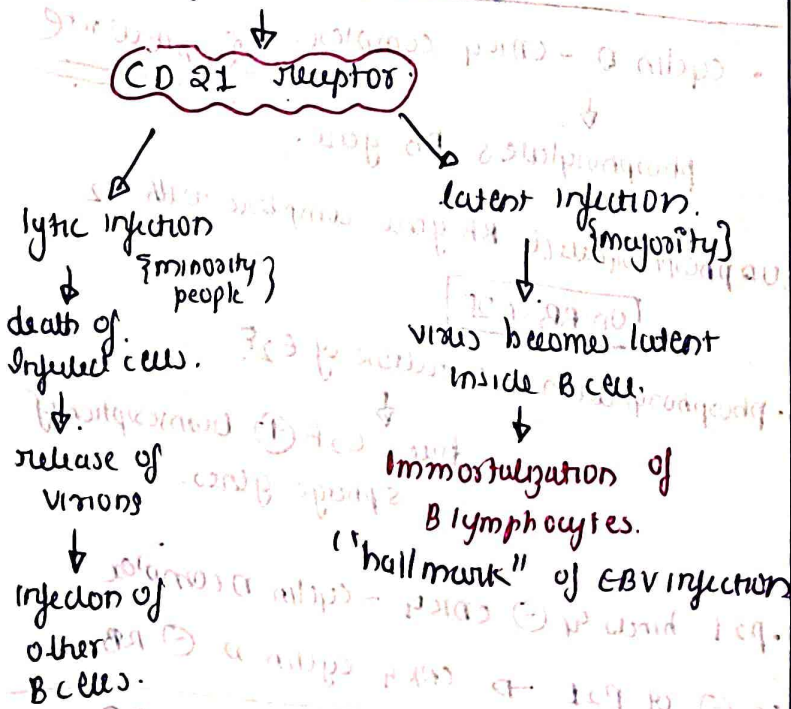 CD 21 receptor.
lytic infection
{minority people}
death of
Infected cells.
release of
virions
infection of
other
B cells.
latent infection.
{majority}
virus becomes latent
inside B cell.
Immortalization of
B lymphocytes.
("hallmark" of EBV infection